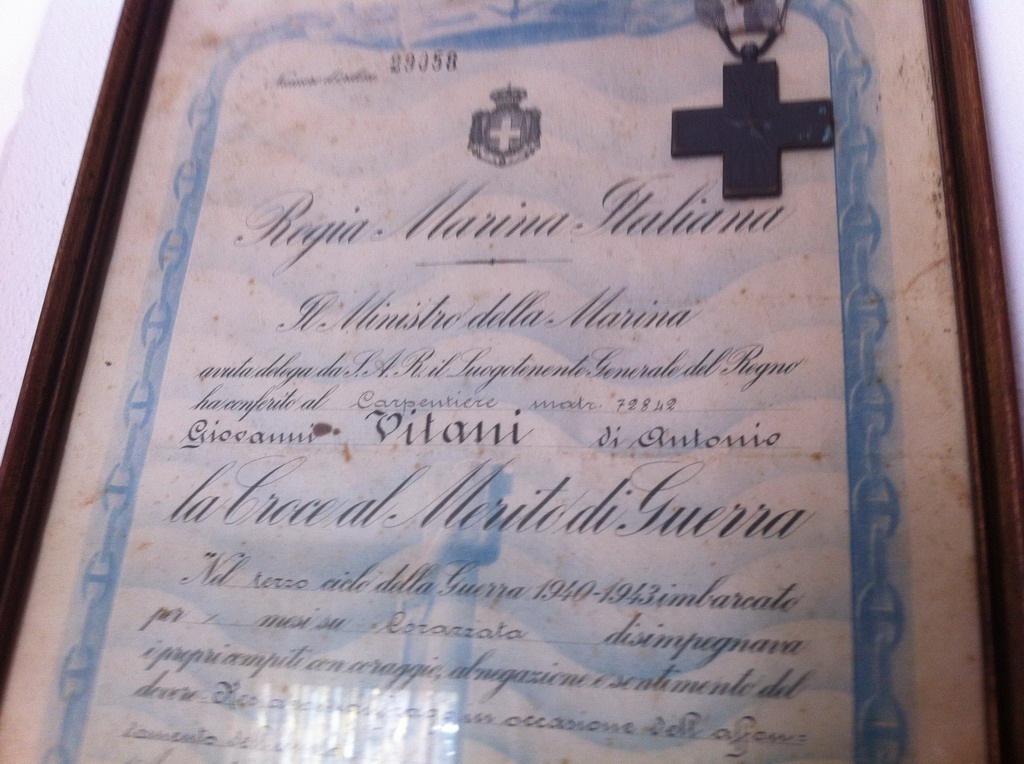 Numero d'ordine 29058
Regia Marina Italiana
Il Ministro della Marina
avuta delega da S.A.R. il Luogotenente Generale del Regno
ha conferito al Carpentiere matr. 72842
Giovanni Vitani di Antonio
la Croce al Merito di Guerra
"Nel terzo ciclo della Guerra 1940-1943 imbarcato
per / mesi su Corazzata disimpegnava
i propri compiti con coraggio, abnegazione e sentimento del
dovere in occasione dell'affon=
damento